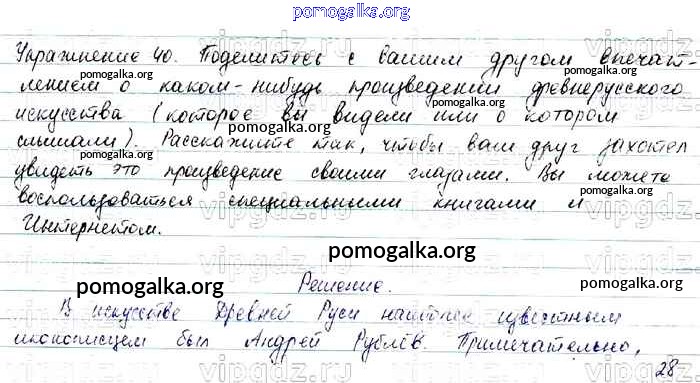 pomogalka.org
Упражнение 40. Поделитесь с вашим другом впечат-
лением о каком-нибудь произведении древнерусского
pomogalka.org pomogalka.org pomogalka.org
искусства (которое вы видели или о котором
pomogalka.org
слышали). Расскажите так, чтобы ваш друг захотел
увидеть это произведение своими глазами. Вы можете
pomogalka.org pomogalka.org
воспользоваться специальными книгами и
Интернетом.
pomogalka.org
pomogalka.org Решение. pomogalka.org
В искусстве Древней Руси наиболее известным
иконописцем был Андрей Рублёв. Примечательно,
pomogalka.org
28